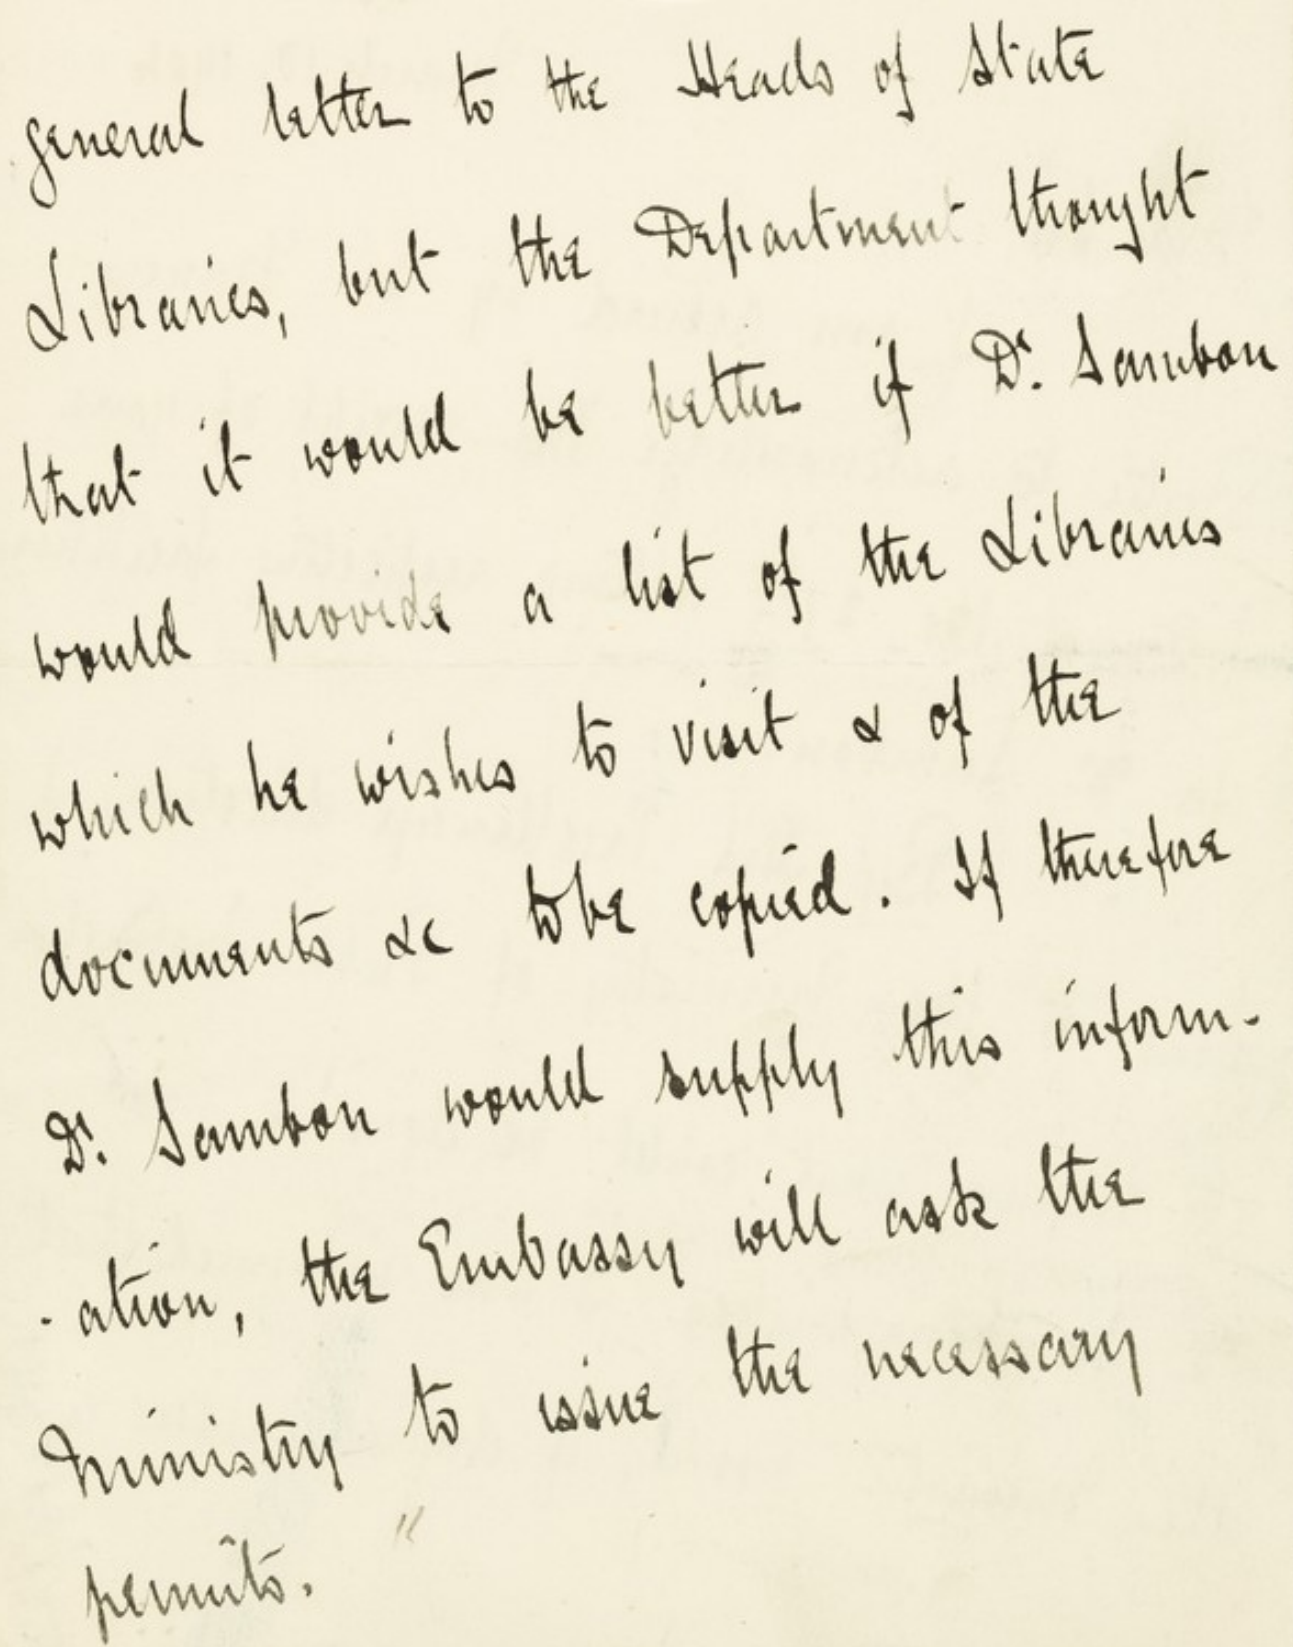 general letter to the Heads of State
Libraries, but the Department thought
that it would be better if Dr. Sambon
would provide a list of the Libraries
which he wishes to visit & of the
documents &c to be copied. If therefore
Dr. Sambon would supply this inform-
-ation, the Embassy will ask the
Ministry to issue the necessary
permits. "